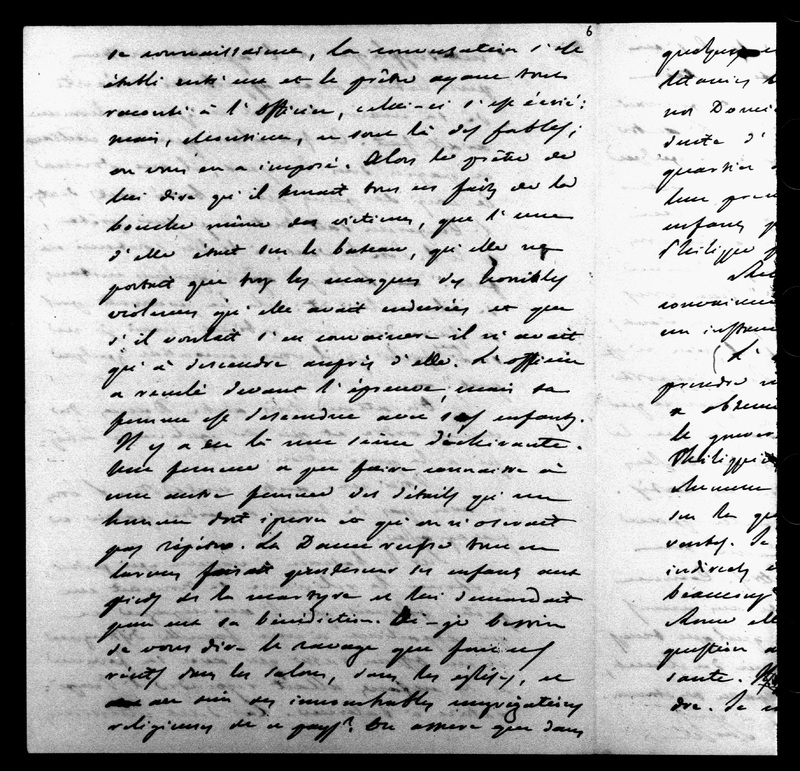 6
sa connaissance, la conversation s'est
établi entre eux et le prêtre ayant tout
raconté à l'officier, celui-ci s'est écrié:
mais, Monsieur, ce sont là des fables;
on vous en a imposé. Alors le prêtre de
lui dire qu'il tenait tous ces faits de la
bouche même des victimes, que l'une
d'elle était sur le bateau, qu'elle ne
portait que trop les marques des horribles
violences qu'elle avait endurées et que
s'il voulait s'en convaincre il n'avait
qu'à descendre auprès d'elle. L'officier
a reculé devant l'épreuve, mais sa
femme est descendue avec ses enfants.
Il y a eu là une scène déchirante.
Une femme a pu faire connaître à
une autre femme des détails qu'un
homme doit ignorer et qu'on n'oserait
pas répéter. La Dame russe tout en
larmes faisait agenouiller ses enfants aux
pieds de la martyre et lui demandait
pour eux sa bénédiction. Ai-je besoin
de vous dire le ravage que font ces
récits dans les salons, dans les églises, et
au sein des innombrables congrégations
religieuses de ce pays? On assure que dans
quelques
litanies
nos Domi
suite d'
quartier
leur pre
enfants p
Philippe
convaincu
un instrum
(L'
prendre
a obtenu
le gouver
Philippe
sur la
ventes. Je
indirects
beaucoup
Rome elle
question
sante.
dre. Je